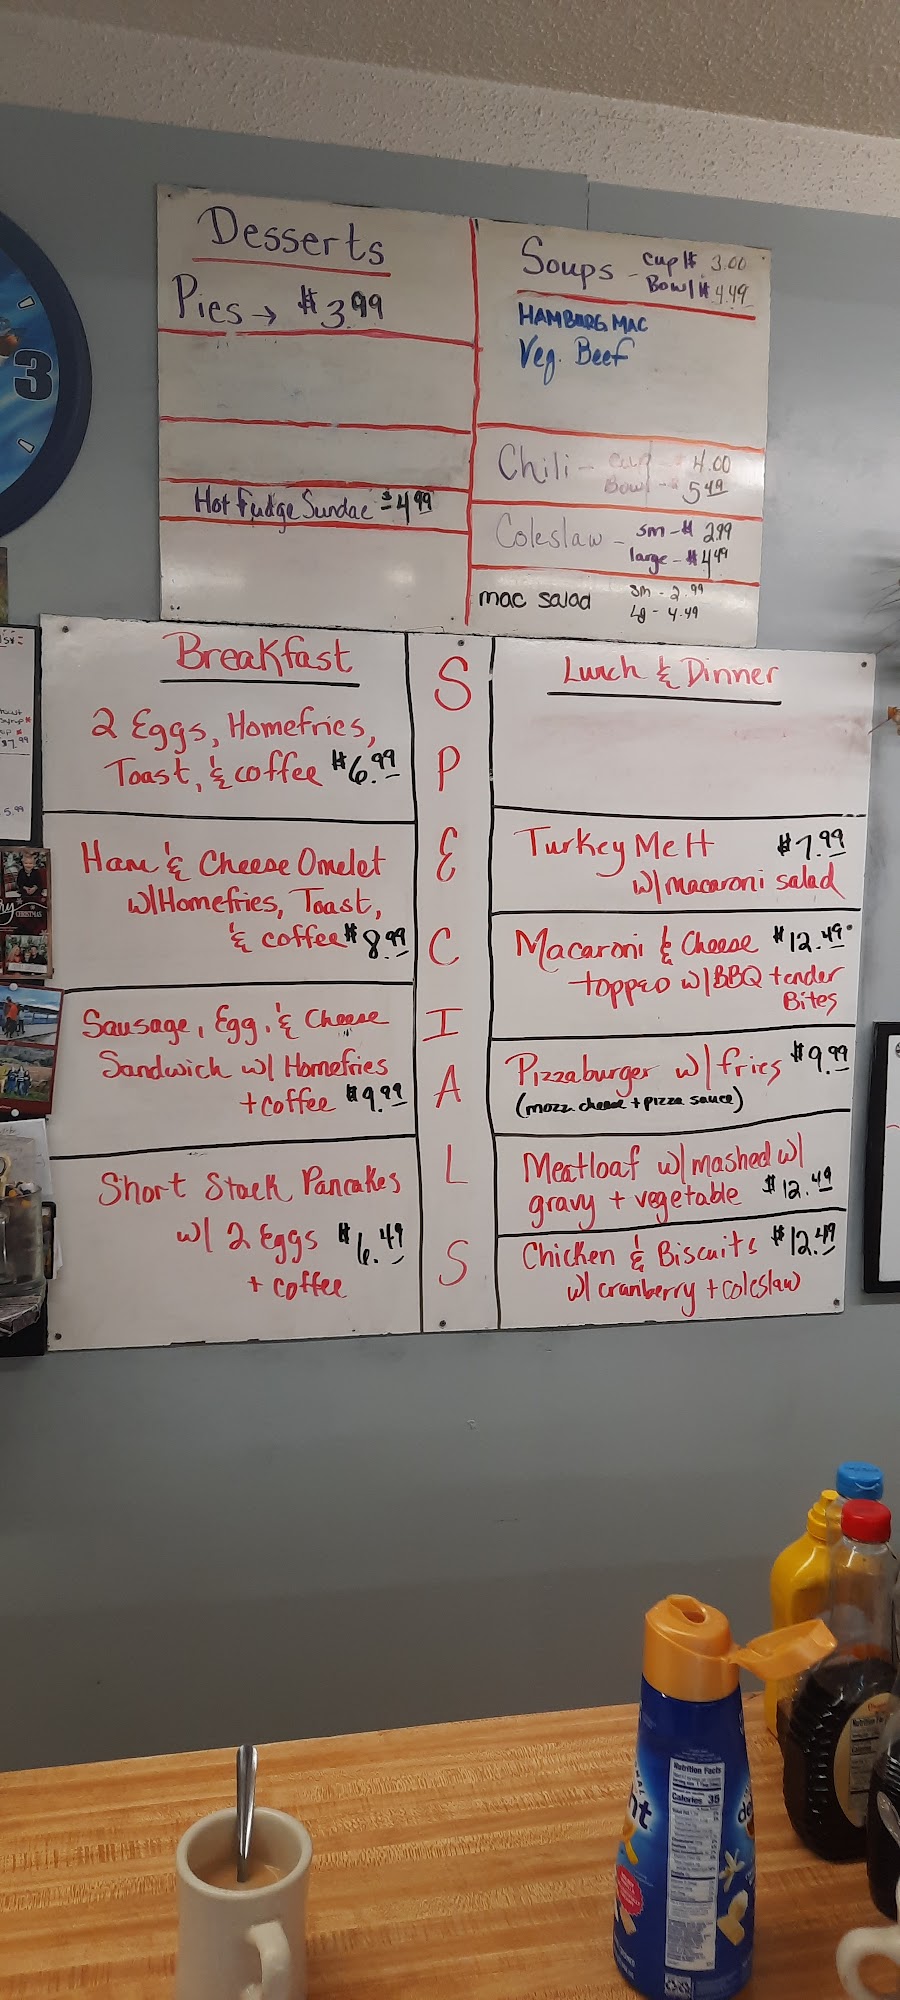 Desserts
Pies → $3.99
Hot Fudge Sundae $4.99
Soups - cup $ 3.00
Bowl $ 4.49
HAMBURG MAC
Veg. Beef
Chili - cup - $ 4.00
Bowl - $ 5.49
Coleslaw - sm - $ 2.99
large - $4.49
mac salad sm - 2.99
Lg - 4.49
Breakfast
2 Eggs, Homefries,
Toast, & coffee $6.99
Ham & Cheese Omelet
w/Homefries, Toast,
& coffee $8.99
Sausage, Egg, & Cheese
Sandwich w/ Homefries
+ coffee $9.99
Short Stack Pancakes
w/ 2 Eggs $6.49
+ coffee
S
P
E
C
I
A
L
S
Lunch & Dinner
Turkey Melt $7.99
w/macaroni salad
Macaroni & Cheese $12.49
topped w/BBQ tender
Bites
Pizzaburger w/fries $9.99
(mozz cheese + pizza sauce)
Meatloaf w/mashed w/
gravy + vegetable $12.49
Chicken & Biscuits $12.49
w/ cranberry + coleslaw
3
$7.99
5.99
CHRISTMAS
Nutrition Facts
Calories 35